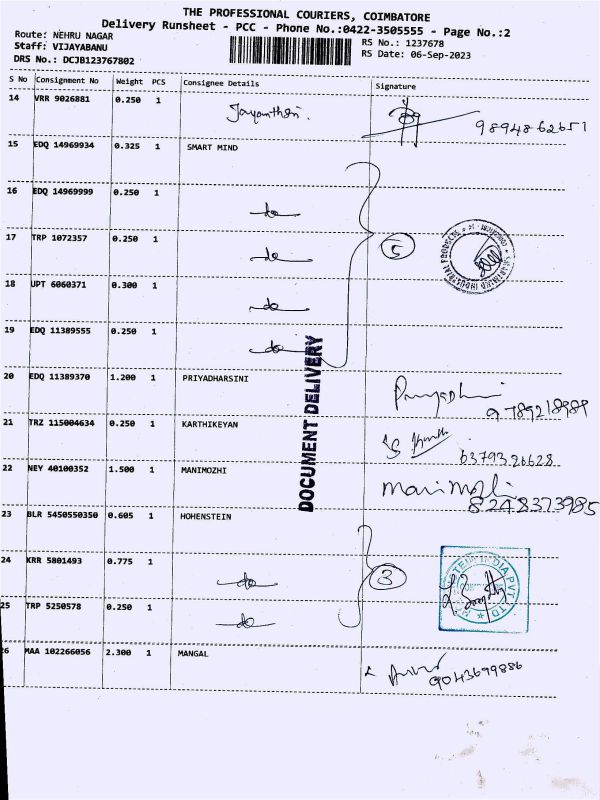 THE PROFESSIONAL COURIERS, COIMBATORE
Delivery Runsheet - PCC - Phone No.:0422-3505555 - Page No.:2
Route: NEHRU NAGAR
Staff: VIJAYABANU
DRS No.: DCJB123767802
RS No.: 1237678
RS Date: 06-Sep-2023
S No Consignment No Weight PCS Consignee Details Signature
14 VRR 9026881 0.250 1 Jayanthi. 9894862651
15 EDQ 14969934 0.325 1 SMART MIND
16 EDQ 14969999 0.250 1 do
17 TRP 1072357 0.250 1 do 5
18 UPT 6060371 0.300 1 do
19 EDQ 11389555 0.250 1 do
DOCUMENT DELIVERY
20 EDQ 11389370 1.200 1 PRIYADHARSINI
9789218989
21 TRZ 115004634 0.250 1 KARTHIKEYAN
6379326628
22 NEY 40100352 1.500 1 MANIMOZHI Manimozhi
8248373985
23 BLR 5450550350 0.605 1 HOHENSTEIN
24 KRR 5801493 0.775 1 do 3
25 TRP 5250578 0.250 1 do
26 MAA 102266056 2.300 1 MANGAL
9043699886